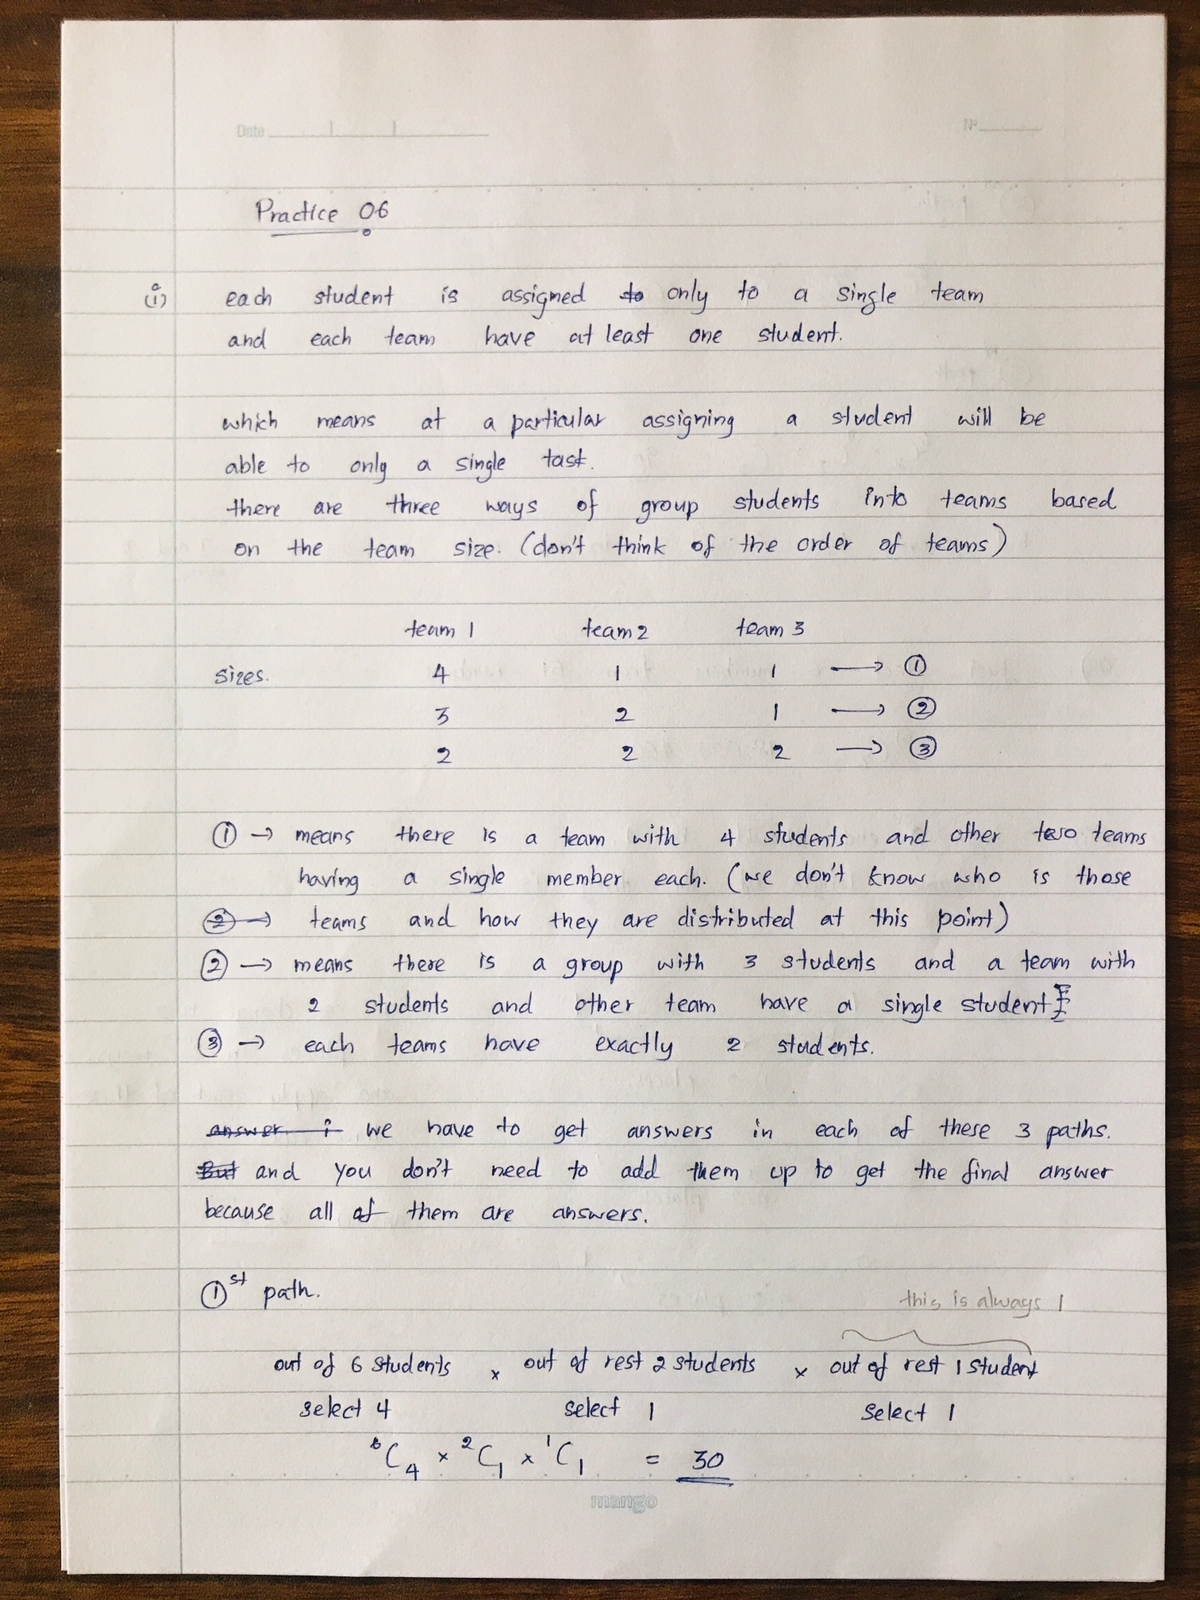 Date
Nº
Practice 06
(i) each student is assigned to only to a single team
and each team have at least one student.
which means at a particular assigning a student will be
able to only a single task.
there are three ways of group students into teams based
on the team size. (don't think of the order of teams)
team 1 team 2 team 3
sizes. 4 1 1 → ①
3 2 1 → ②
2 2 2 → ③
① → means there is a team with 4 students and other two teams
having a single member each. (we don't know who is those
② → teams and how they are distributed at this point)
② → means there is a group with 3 students and a team with
2 students and other team have a single student
③ → each teams have exactly 2 students.
answer i we have to get answers in each of these 3 paths.
But and you don't need to add them up to get the final answer
because all of them are answers.
①st path.
this is always 1
out of 6 students × out of rest 2 students × out of rest 1 student
select 4 select 1 select 1
⁶C₄ × ²C₁ × ¹C₁ = 30
mango